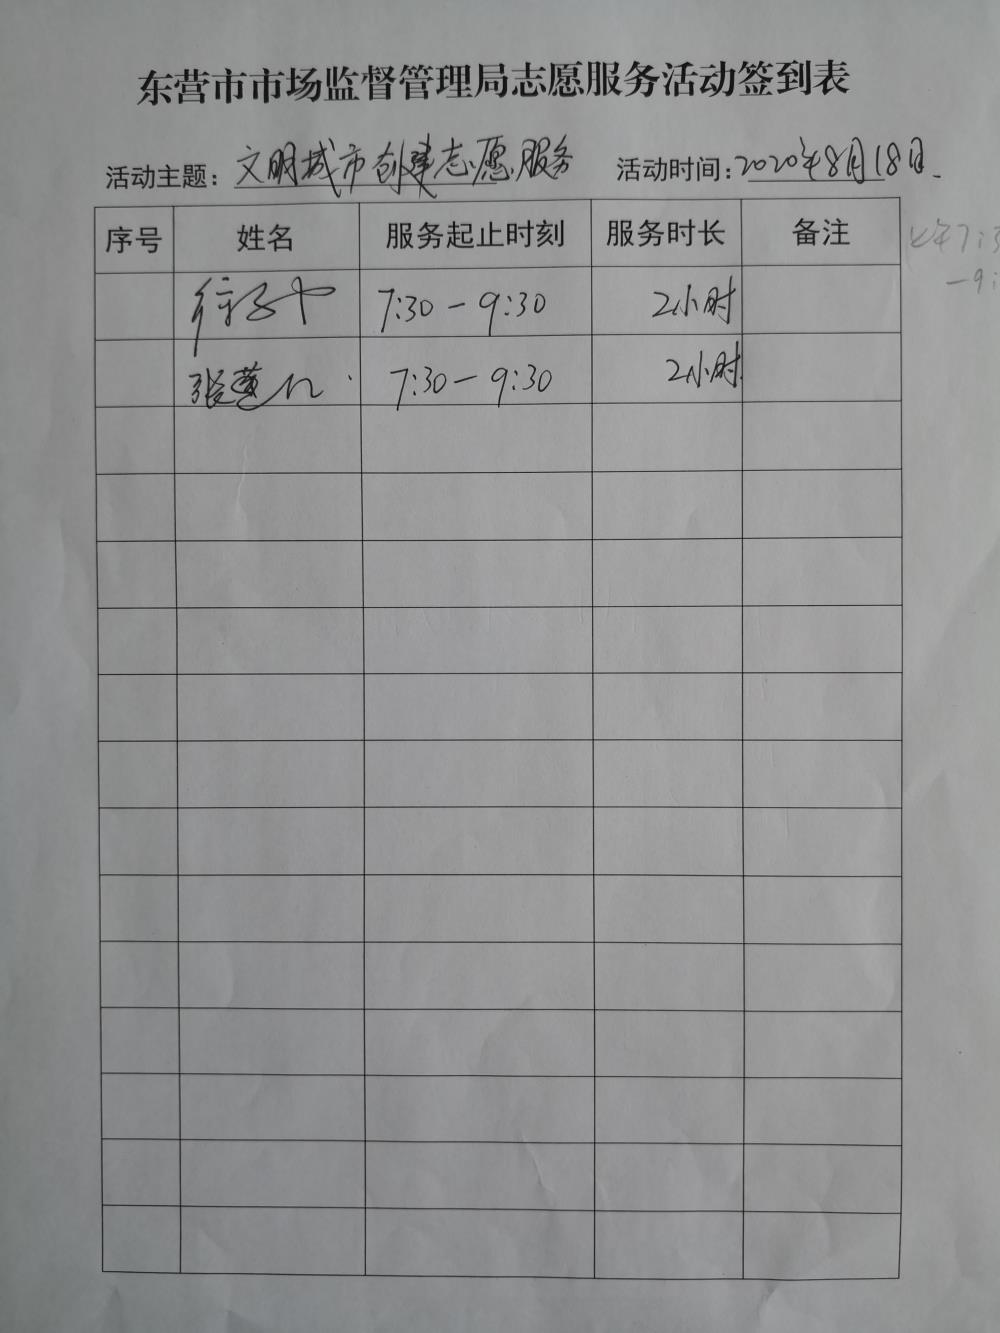 东营市市场监督管理局志愿服务活动签到表
活动主题：文明城市创建志愿服务 活动时间：2020年8月18日.
序号 姓名 服务起止时刻 服务时长 备注
7:30－9:30 2小时
张 7:30－9:30 2小时